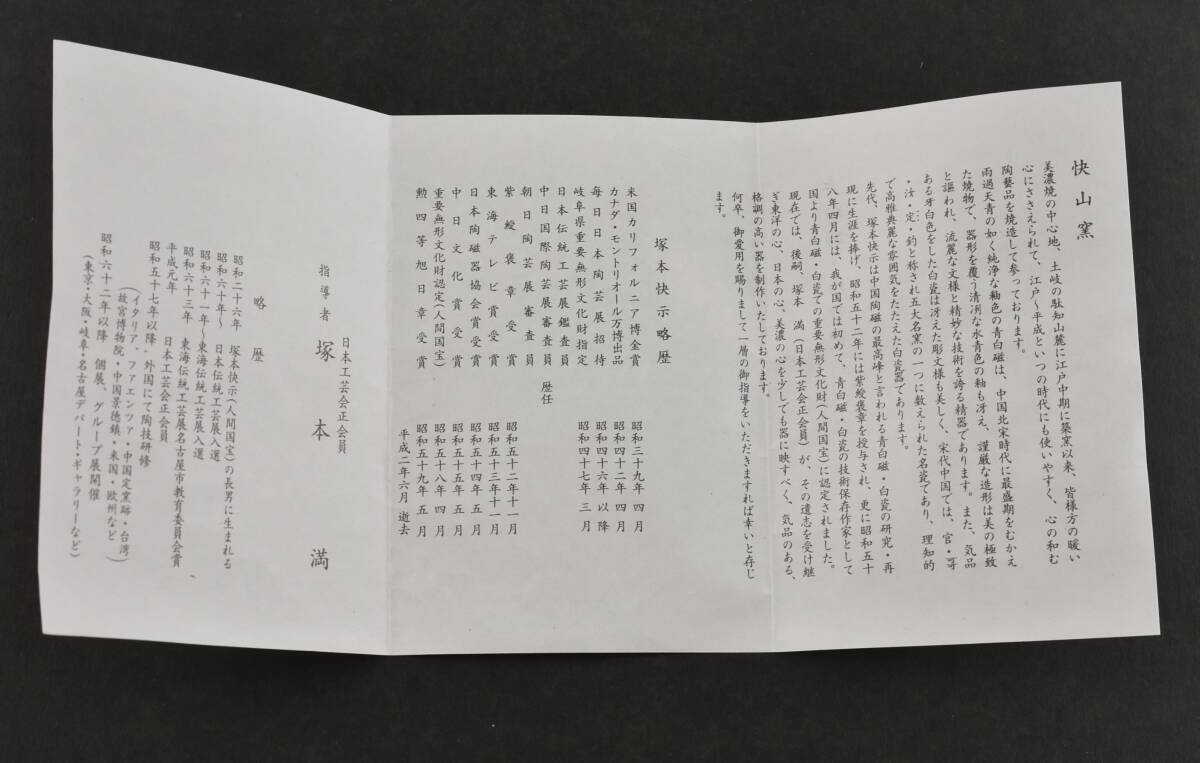 快山窯
美濃焼の中心地、土岐の駄知山麓に江戸中期に築窯以来、皆様方の暖い
心にささえられて、江戸〜平成といつの時代にも使いやすく、心の和む
陶藝品を焼造して参っております。
雨過天青の如く純浄な釉色の青白磁は、中国北宋時代に最盛期をむかえ
た焼物で、器形を覆う清冽な水青色の釉も冴え、謹厳な造形は美の極致
と謳われ、流麗な文様と精妙な技術を誇る精器であります。また、気品
ある牙白色をした白瓷は冴えた彫文様も美しく、宋代中国では、官・哥
・汝・定・鈞と称され五大名窯の一つに数えられた名瓷であり、理知的
で高雅典麗な雰囲気をたたえた白瓷器であります。
先代、塚本快示は中国陶磁の最高峰と言われる青白磁・白瓷の研究・再
現に生涯を捧げ、昭和五十二年には紫綬褒章を授与され、更に昭和五十
八年四月には、我が国では初めて、青白磁・白瓷の技術保存作家として
国より青白磁・白瓷での重要無形文化財(人間国宝)に認定されました。
現在では、後嗣、塚本 満(日本工芸会正会員)が、その遺志を受け継
ぎ東洋の心、日本の心、美濃の心を少しでも器に映すべく、気品のある、
格調の高い器を制作いたしております。
何卒、御愛用を賜りまして一層の御指導をいただきますれば幸いと存じ
ます。
塚本快示略歴
米国カリフォルニア博金賞 昭和三十九年 四月
カナダ・モントリオール万博出品 昭和四十二年 四月
毎日日本陶芸展招待 昭和四十六年以降
岐阜県重要無形文化財指定 昭和四十七年 三月
日本伝統工芸展鑑査員
中日国際陶芸展審査員 歴任
朝日陶芸展審査員
紫綬褒章受賞 昭和五十二年十一月
東海テレビ賞受賞 昭和五十三年十一月
日本陶磁器協会賞受賞 昭和五十四年 五月
中日文化賞受賞 昭和五十五年 五月
重要無形文化財認定(人間国宝) 昭和五十八年 四月
勲四等旭日章受賞 昭和五十九年 五月
平成二年六月 逝去
日本工芸会正会員
指導者 塚本 満
略歴
昭和二十六年 塚本快示(人間国宝)の長男に生まれる
昭和六十年〜 日本伝統工芸展入選
昭和六十一年〜 東海伝統工芸展入選
昭和六十三年 東海伝統工芸展名古屋市教育委員会賞
平成元年 日本工芸会正会員
昭和五十七年以降、外国にて陶技研修
(イタリア、ファエンツァ・中国定窯跡・台湾
故宮博物院・中国景徳鎮・米国・欧州など)
昭和六十二年以降 個展、グループ展開催
(東京・大阪・岐阜・名古屋デパート・ギャラリーなど)